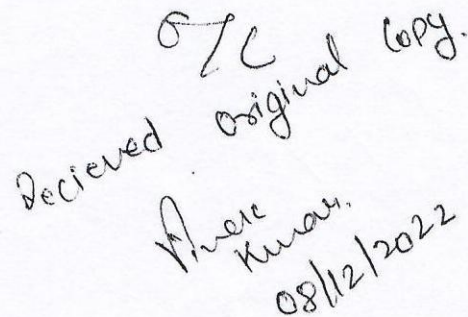 O/C
Recieved original Copy.
Vivek
Kumar.
08/12/2022